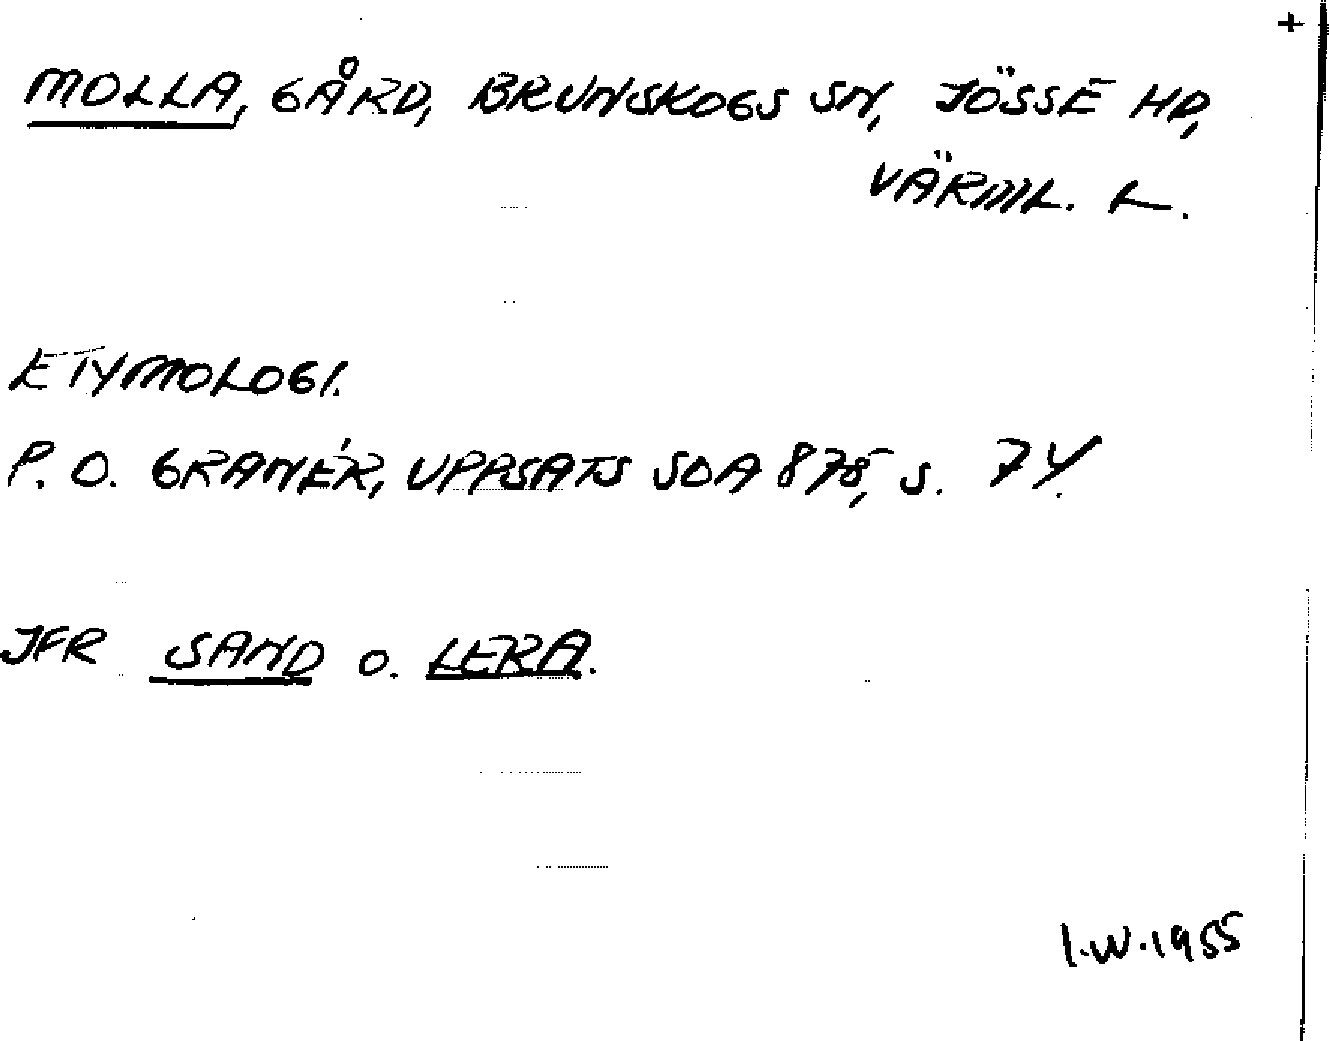 +
MOLLA, GÅRD, BRUNSKOGS SN, JÖSSE HD,
VÄRML. L.
ETYMOLOGI.
P. O. GRANÉR, UPPSATS SOA 878, S. 74.
JFR SAND O. LERA.
I.W. 1955